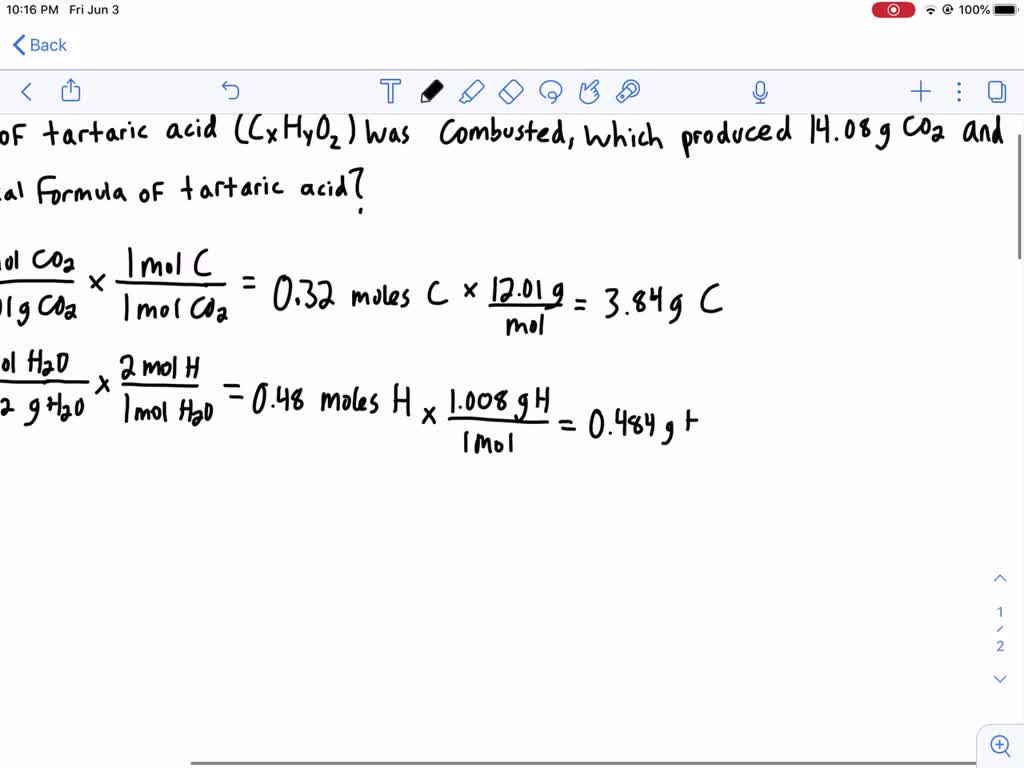 10:16 PM Fri Jun 3 100%
Back
T
of tartaric acid (CxHyOz) was combusted, which produced 14.08 g CO2 and
al Formula of tartaric acid?
ol CO2 / 1 g CO2 × 1 mol C / 1 mol CO2 = 0.32 moles C × 12.01 g / mol = 3.84 g C
ol H2O / 2 g H2O × 2 mol H / 1 mol H2O = 0.48 moles H × 1.008 g H / 1 mol = 0.484 g
1 / 2